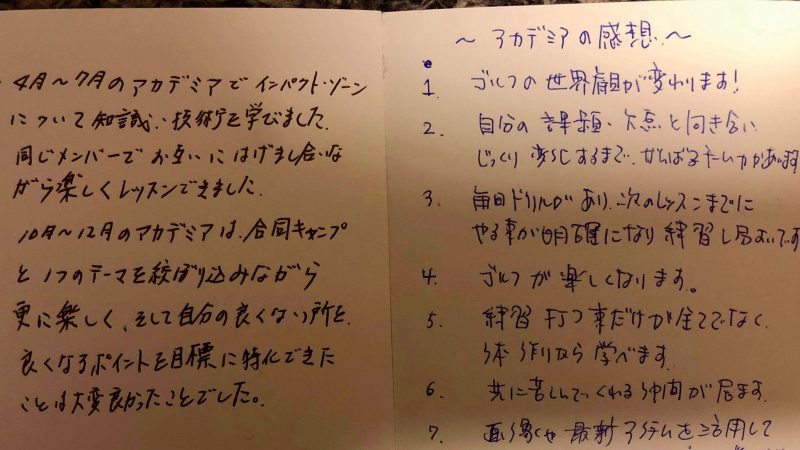 4月～7月のアカデミアでインパクト・ゾーン
について知識、技術を学びました。
同じメンバーでお互いにはげまし合いな
がら楽しくレッスンできました。
10月～12月のアカデミアは、合同キャンプ
と1つのテーマを絞ぼり込みながら
更に楽しく、そして自分の良くない所を、
良くなるポイントを目標に特化できた
ことは大変良かったことでした。
～アカデミアの感想～
1. ゴルフの世界観が変わります!
2. 自分の課題、欠点と向き合い
じっくり変化するまで、がんばるたいカがあります
3. 毎日ドリルがあり、次のレッスンまでに
やる事が明確になり練習し易いです
4. ゴルフが楽しくなります。
5. 練習 打つ事だけが全てでなく、
体作りから学べます。
6. 共に苦しんでくれる仲間が居ます。
7. 画像や最新アイテムを活用して